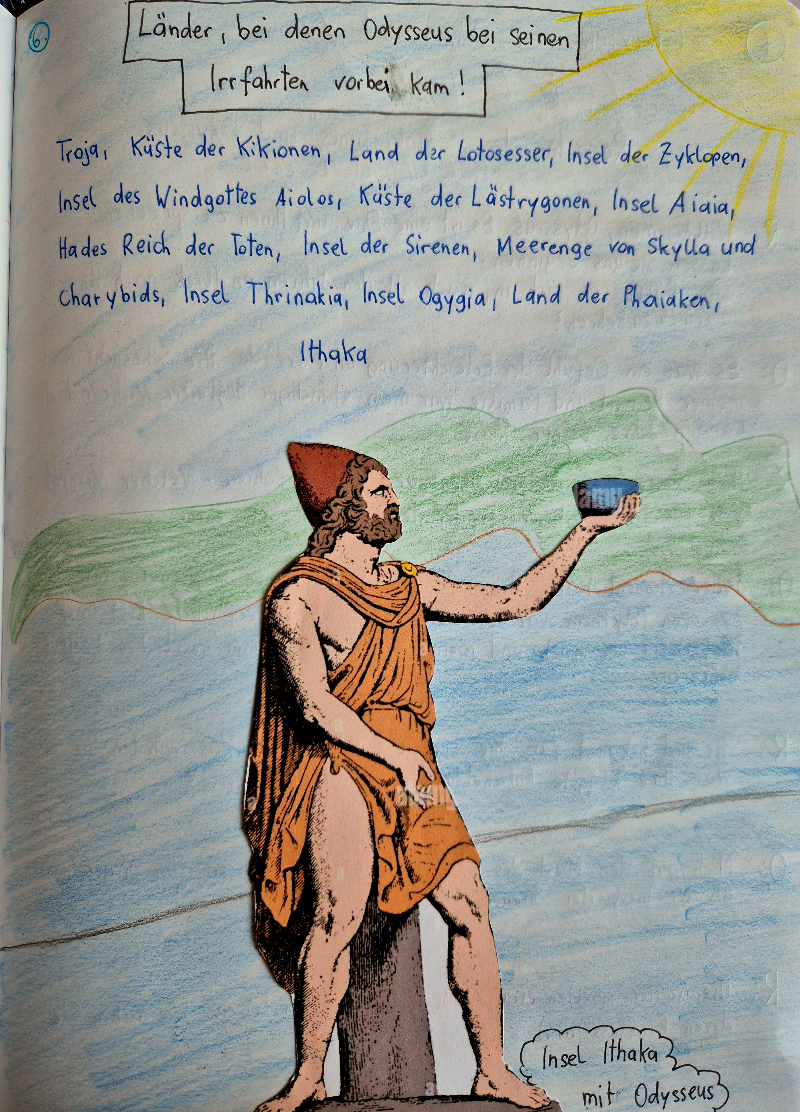 6.
Länder, bei denen Odysseus bei seinen
Irrfahrten vorbei kam!
Troja, Küste der Kikionen, Land der Lotosesser, Insel der Zyklopen,
Insel des Windgottes Aiolos, Küste der Lästrygonen, Insel Aiaia,
Hades Reich der Toten, Insel der Sirenen, Meerenge von Skylla und
Charybids, Insel Thrinakia, Insel Ogygia, Land der Phaiaken,
Ithaka
Insel Ithaka
mit Odysseus